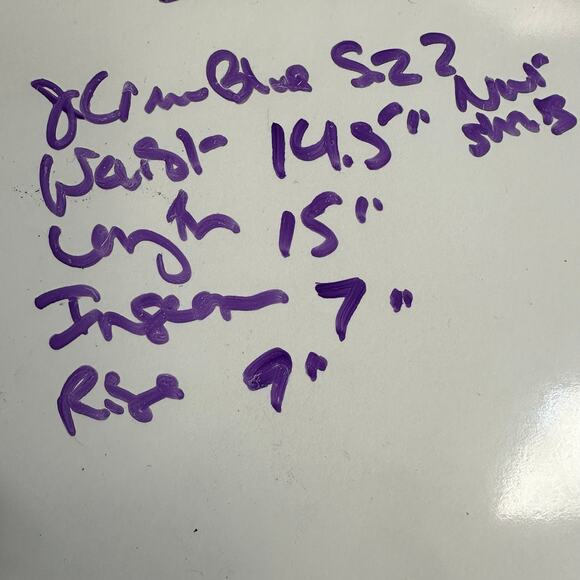 Blue SZ 2
Waist 14.5"
Length 15"
Inseam 7"
Rise 9"